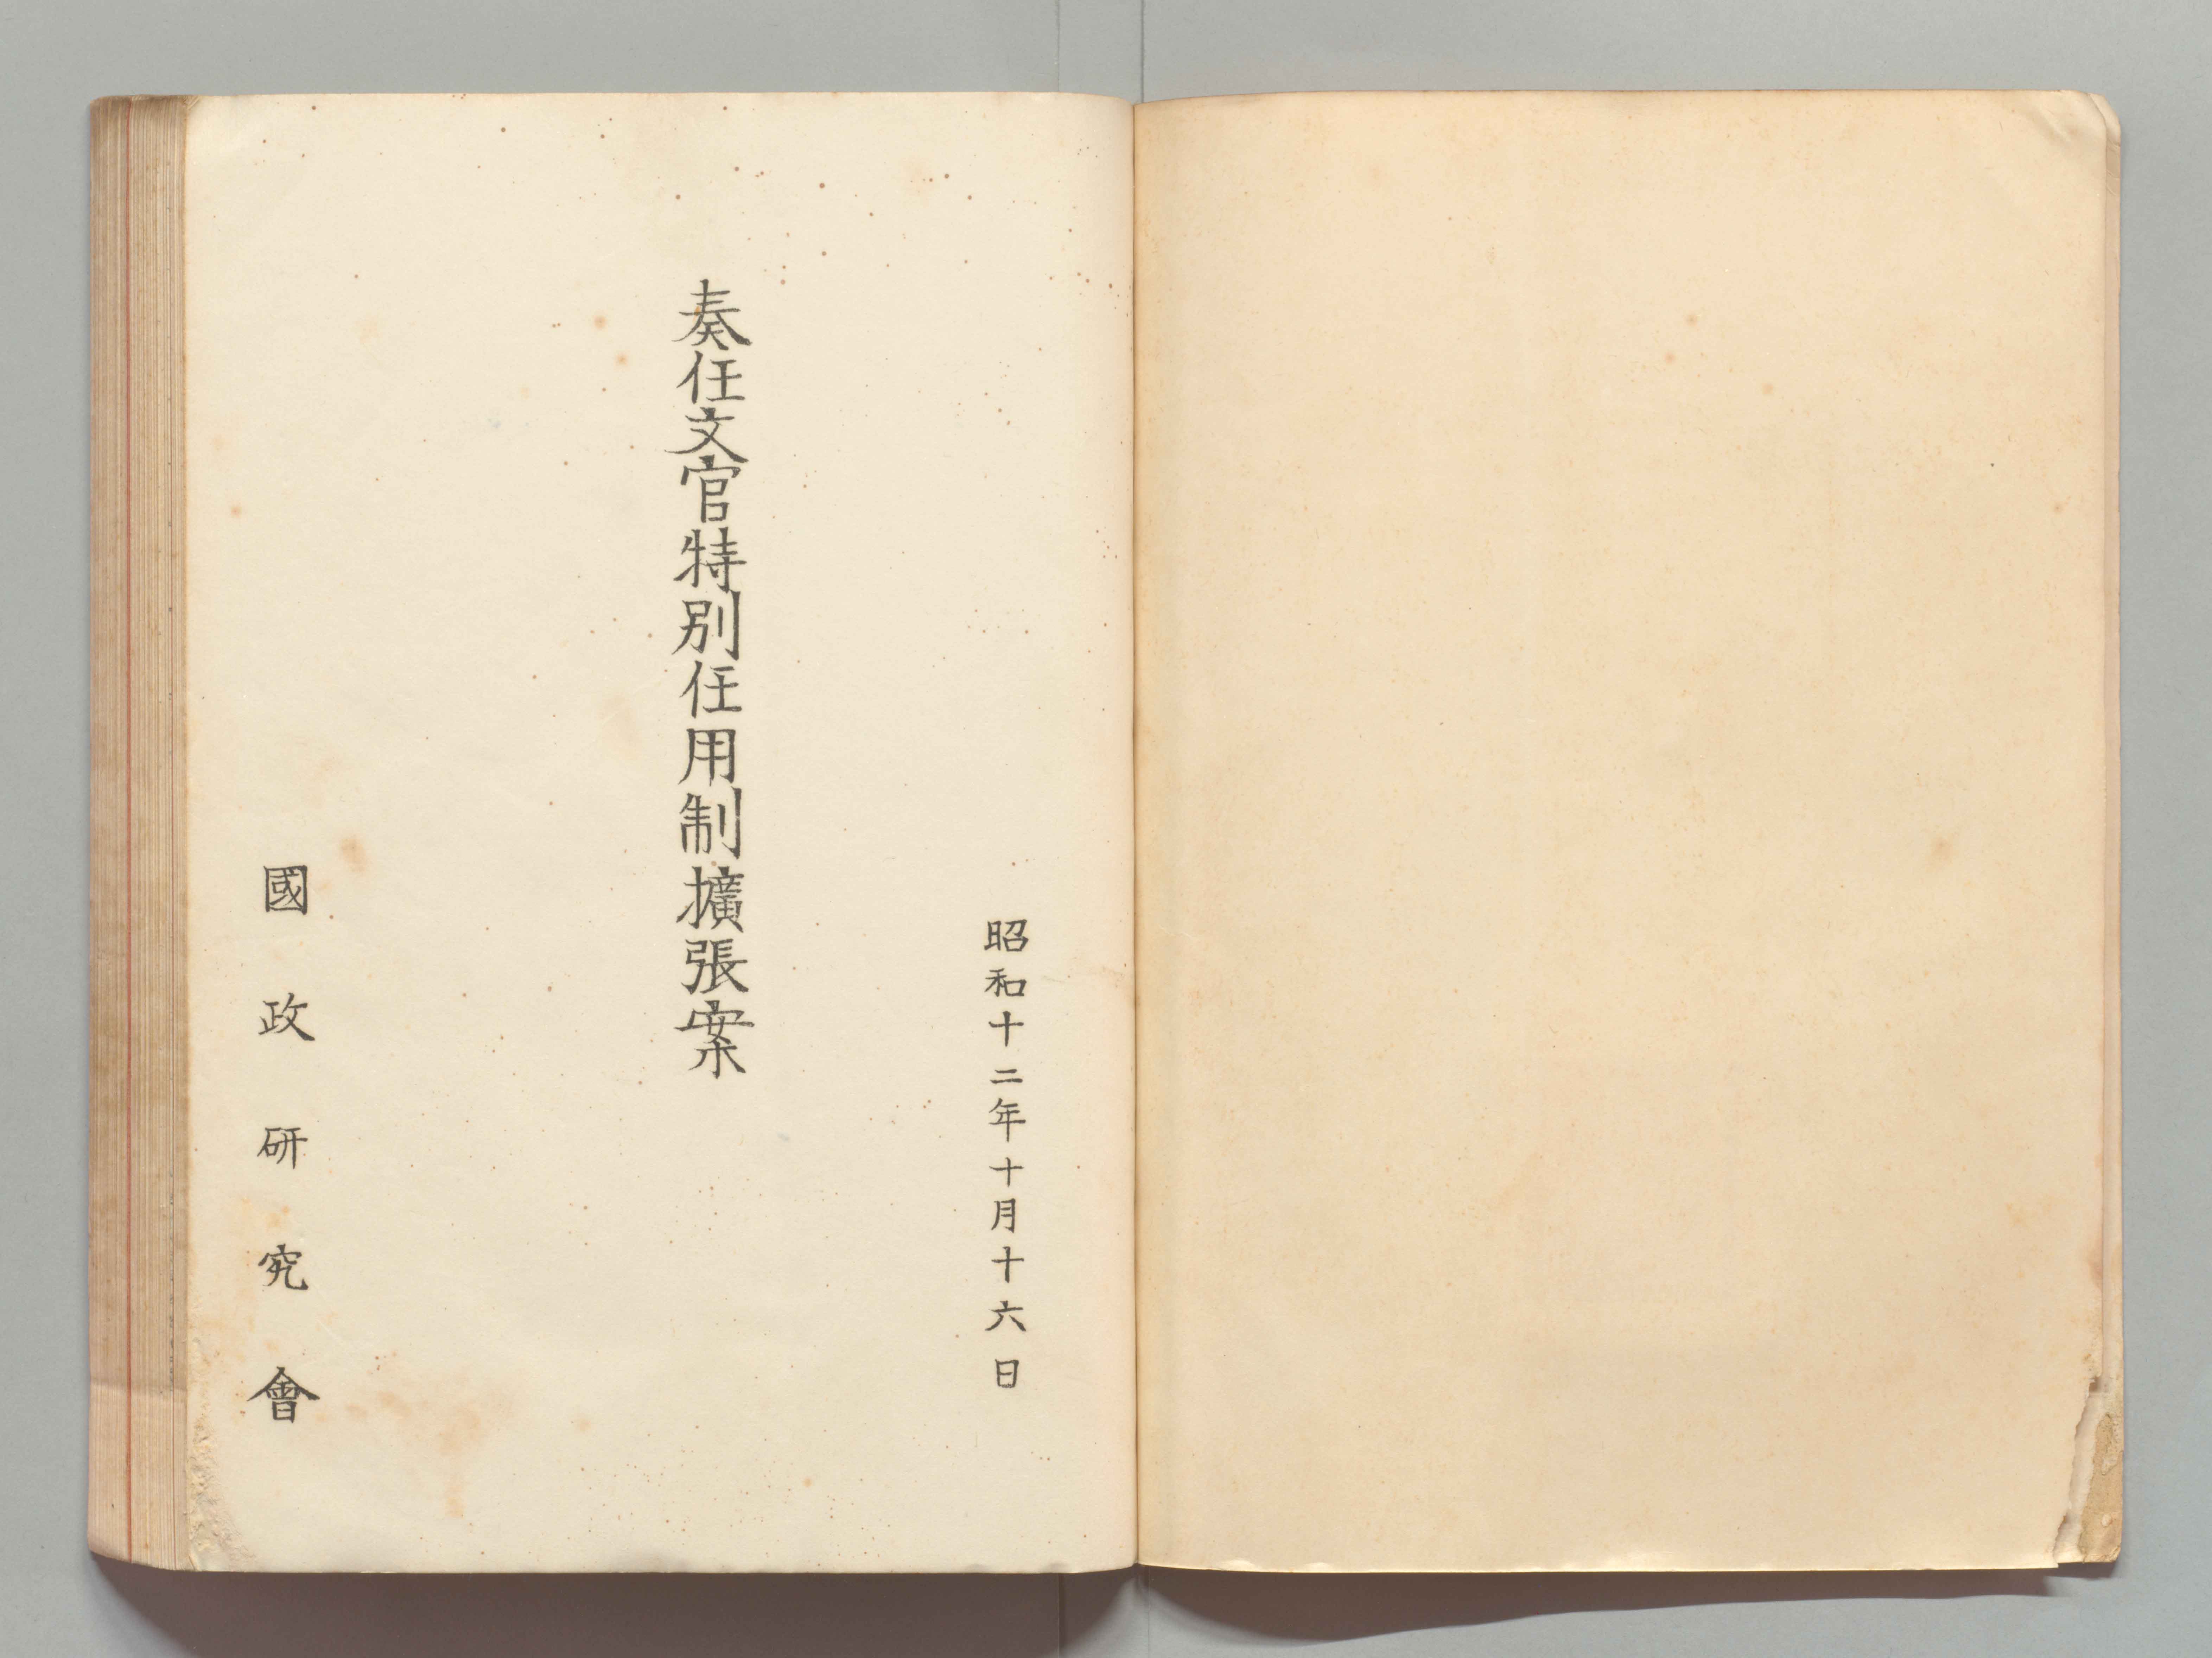 昭和十二年十月十六日
奏任文官特別任用制擴張案
國政研究會